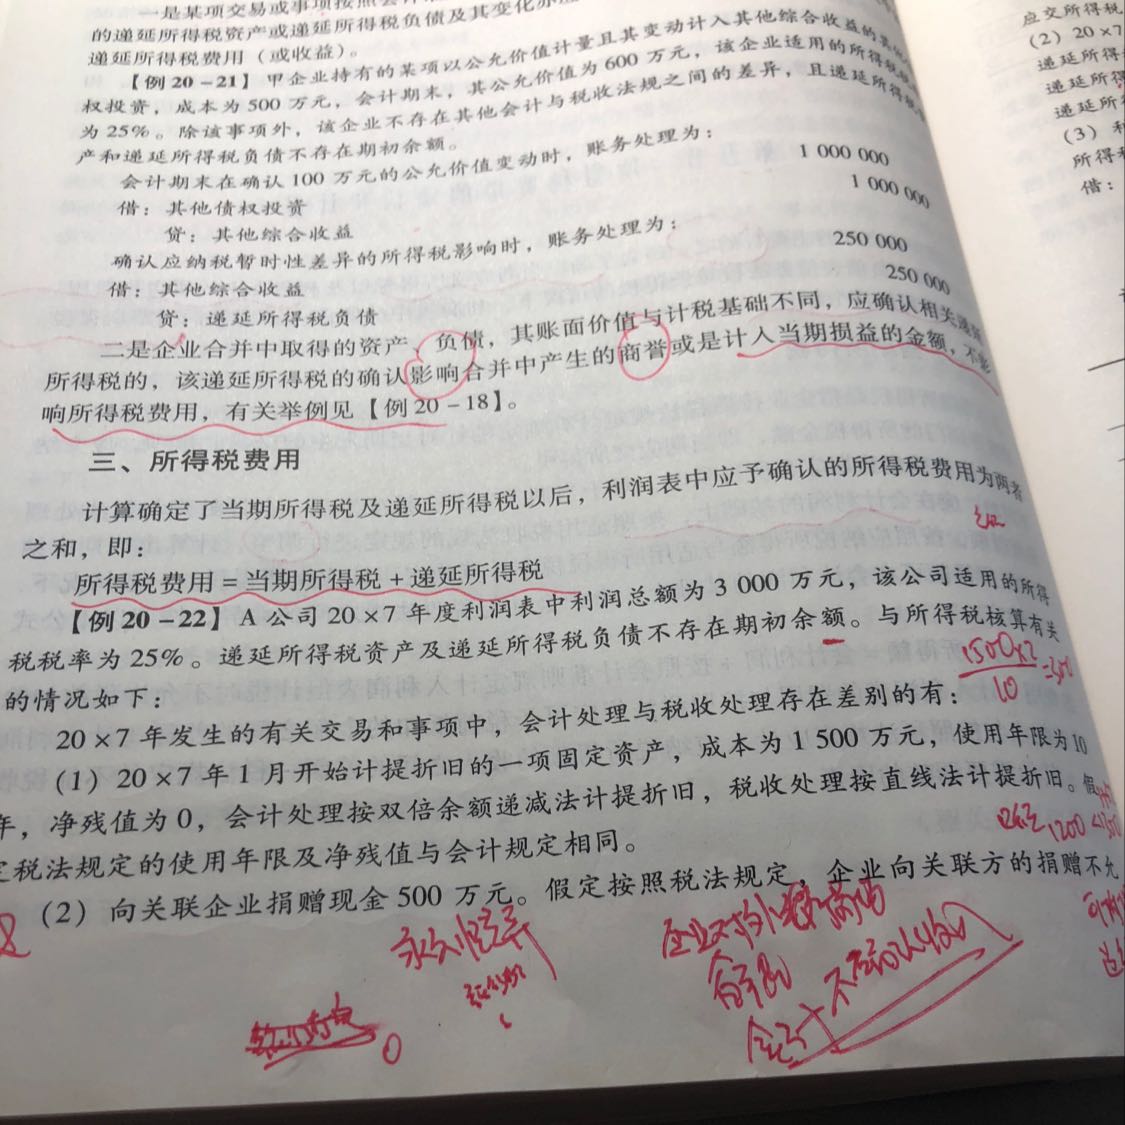 一是某项交易或事项按照会计
的递延所得税资产或递延所得税负债及其变化亦应
递延所得税费用（或收益）。
【例20-21】 甲企业持有的某项以公允价值计量且其变动计入其他综合收益的其他
权投资，成本为500万元，会计期末，其公允价值为600万元，该企业适用的所得税税
为25%。除该事项外，该企业不存在其他会计与税收法规之间的差异，且递延所得税
产和递延所得税负债不存在期初余额。
会计期末在确认100万元的公允价值变动时，账务处理为：
借：其他债权投资 1 000 000
贷：其他综合收益 1 000 000
确认应纳税暂时性差异的所得税影响时，账务处理为：
借：其他综合收益 250 000
贷：递延所得税负债 250 000
二是企业合并中取得的资产、负债，其账面价值与计税基础不同，应确认相关递延
所得税的，该递延所得税的确认影响合并中产生的商誉或是计入当期损益的金额，不影
响所得税费用，有关举例见【例20-18】。
三、所得税费用
计算确定了当期所得税及递延所得税以后，利润表中应予确认的所得税费用为两者
之和，即：
所得税费用=当期所得税+递延所得税
【例20-22】 A公司20×7年度利润表中利润总额为3 000万元，该公司适用的所得
税税率为25%。递延所得税资产及递延所得税负债不存在期初余额。与所得税核算有关
的情况如下：
1500×2
10
20×7年发生的有关交易和事项中，会计处理与税收处理存在差别的有：
(1) 20×7年1月开始计提折旧的一项固定资产，成本为1 500万元，使用年限为10
年，净残值为0，会计处理按双倍余额递减法计提折旧，税收处理按直线法计提折旧。假
定税法规定的使用年限及净残值与会计规定相同。
1200
(2) 向关联企业捐赠现金500万元。假定按照税法规定，企业向关联方的捐赠不允
永久性差异
应交所得税
(2) 20×7
递延所得
递延所得
递延所
(3) 利
所得税
借：